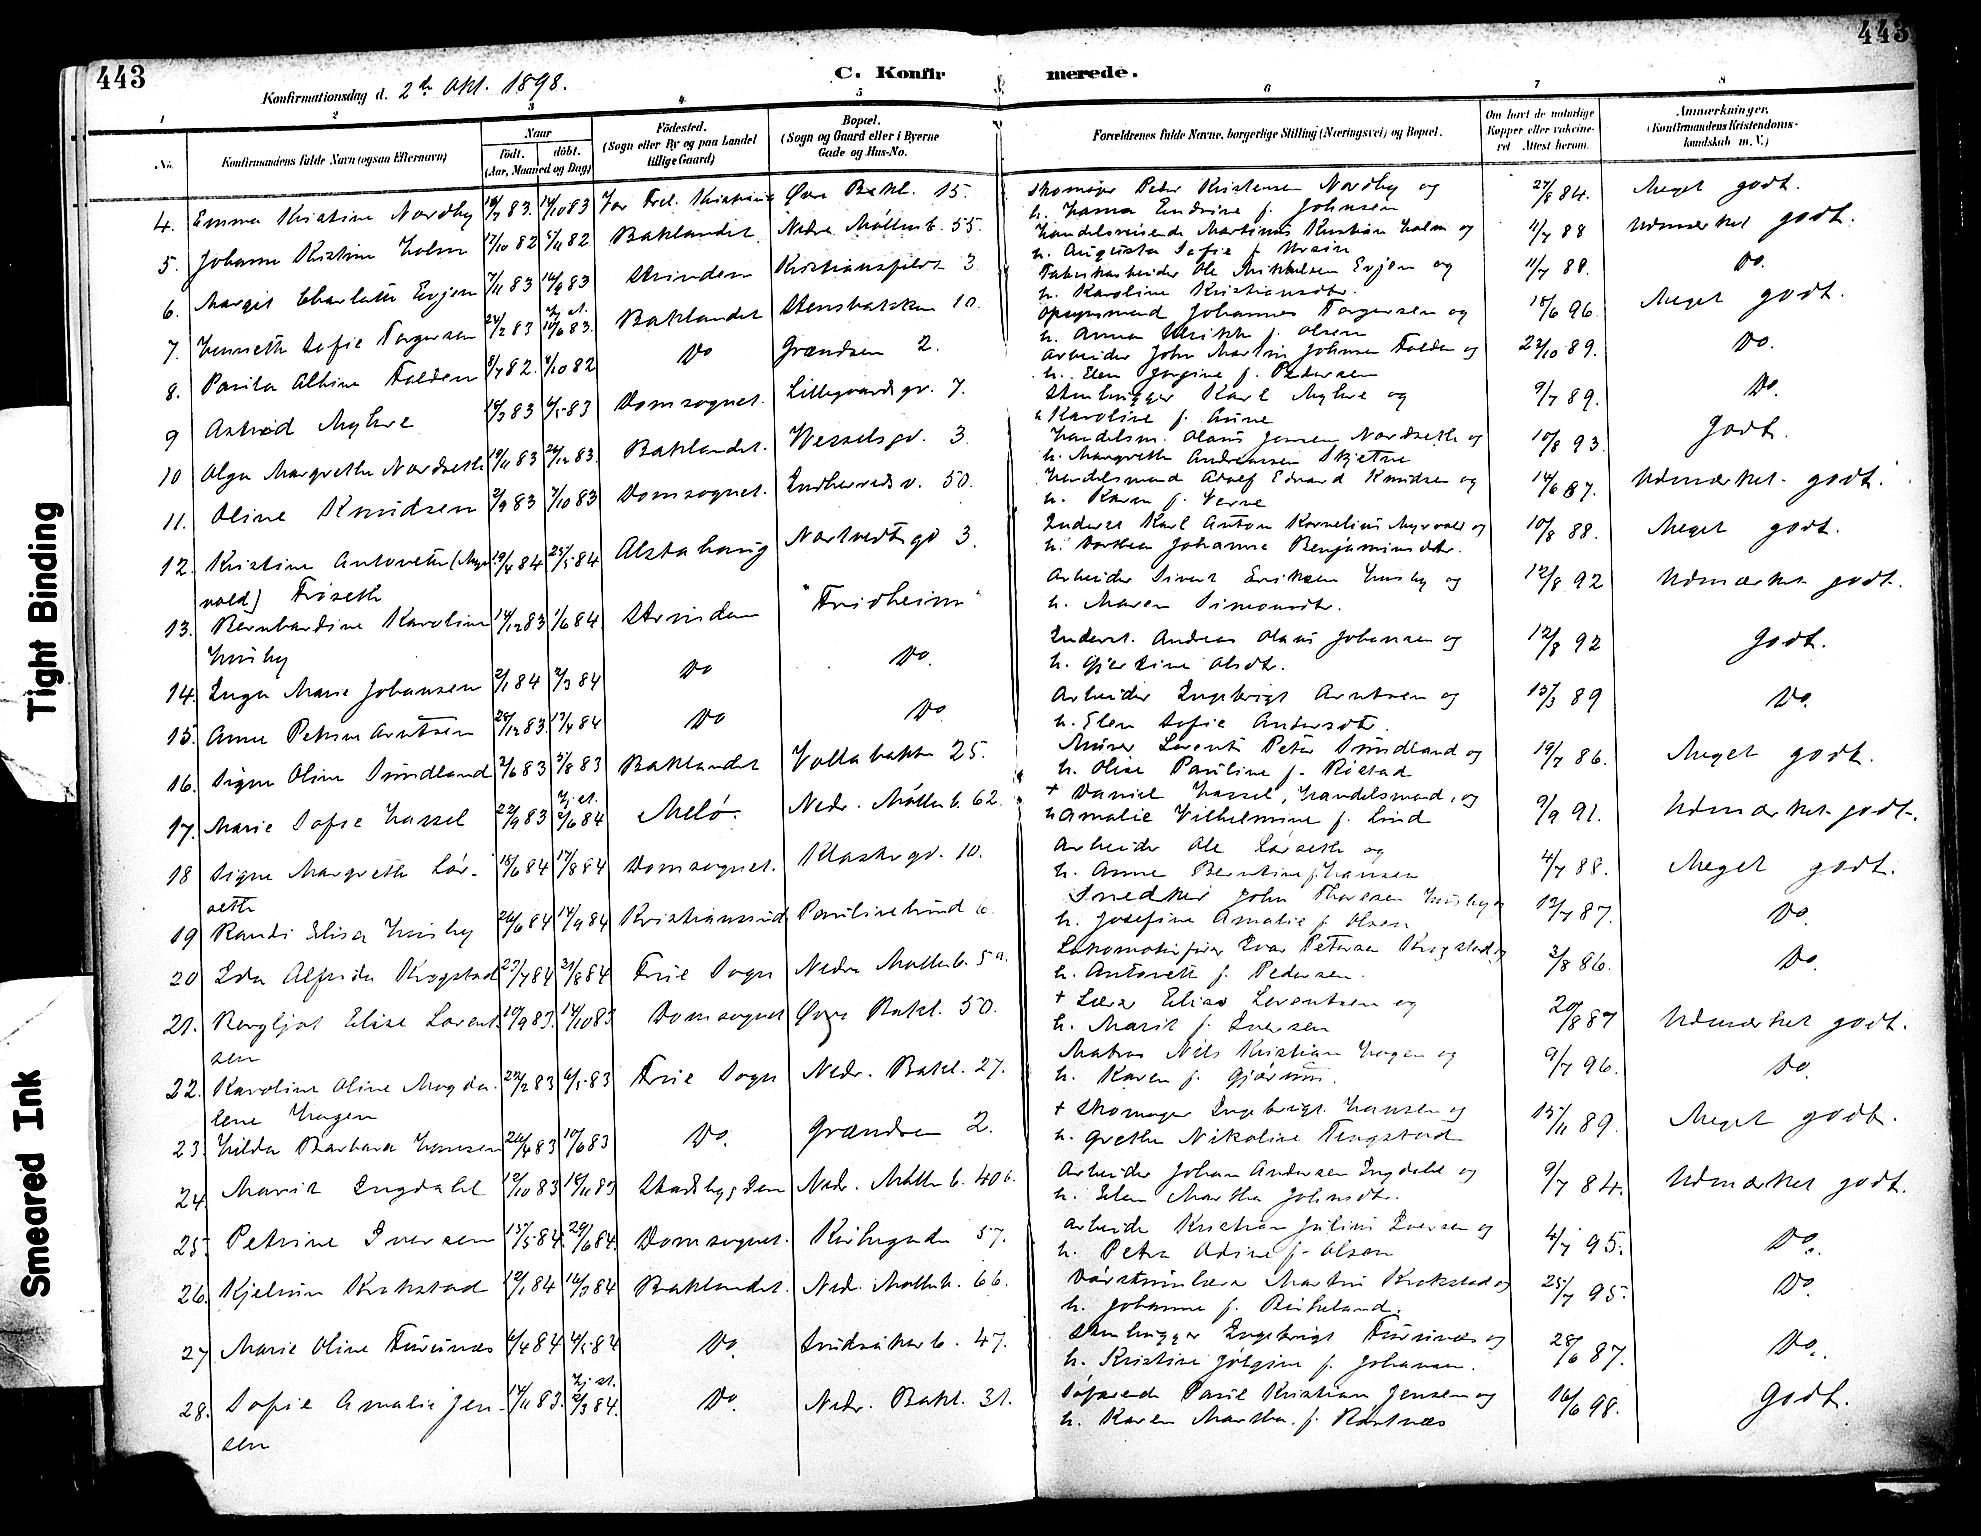 443
443
Konfirmationsdag d. 2den Okt. 1898.
C. Konfirmerede.
1 2 3 4 5 6 7 8
No.
Konfirmandens fulde Navn (ogsaa Efternavn)
Naar
födt.
döbt.
(Aar, Maaned og Dag)
Födested.
(Sogn eller By og paa Landet
tillige Gaard)
Bopæl.
(Sogn og Gaard eller i Byerne
Gade og Hus-No.
Forældrenes fulde Navne, borgerlige Stilling (Næringsvei) og Bopæl.
Om havt de naturlige
Kopper eller vaccineret. Attest herom.
Anmærkninger.
(Konfirmandens Kristendomskundskab m. V.)
4. Emma Kristine Nordby 83. 14/10 83 Øvre Bakl. 15. Skomager Peter Kristensen Nordby og 27/8 84. Meget godt.
h. Endrine f. Johnsen
5. Johanne Kristine Holm 17/10 82 5/11 82 Baklandet. Nedre Möllenb. 55. Handelsreisende Martinus Kristian Holm og 11/7 88 Udmærket godt.
h. Augusta Sofie f.
6. Margit Charlotte Evjen 7/11 83 83 Strinden Kristiansfeldt 3 Fabrikarbeider Ole Mikkelsen Evjen og 11/7 88. Do.
h. Karoline Kristiansdtr.
7. Henriette Sofie Torgersen 24/2 83 Hj. d. 10/6 83. Baklandet Stensbakken 10. Opsynsmand Johannes Torgersen og 18/6 96. Meget godt.
h. Anna Ulrikke f. Olsen
8. Paula Albine Folden 8/7 82. 8/10 82 Do Grændsen 2. Arbeider John Martin Johnsen Folden og 22/10 89. Do.
h. Elen Jorgine f. Pedersen
9 Astrid Myhre 14/3 83 6/5 83 Domsognet. Lillegaardsgr. 7. Stenhugger Karl Myhre og 9/7 89. Do.
h Karoline f. Aune
10 Olga Margrethe Nordseth 19/11 83 26/12 83. Baklandet. Wesselsgd. 3. Handelsm. Olaus Jensen Nordseth og 10/8 93. Godt.
h. Margrethe Andreassen Skjetne
11. Oline Knudsen 2/9 83 7/10 83 Domsognet. Indherredsv. 50. Handelsmand Adolf Edvard Knudsen og 14/6 87. Udmærket godt.
h. Karen f. Verne
12. Kristine Antonette (Myrvold) Fröseth 19/4 84 25/5 84 Alstahaug Nortvedtsgd 3. Inderst Karl Anton Kornelius Myrvold og 10/8 88. Meget godt.
h. Dorthea Johanna Benjaminsdtr.
13. Bernhardine Karoline
Husby 14/12 83 1/6 84 Strinden "Fridheim" Arbeider Sivert Eriksen Husby og 12/8 92 Udmærket godt.
h. Maren Simonsdtr.
14. Inga Marie Johansen 2/1 84 2/3 84 Do Do. Inderst. Andreas Olaus Johansen og 12/8 92 Godt.
h. Gjertine Olsdtr.
15. Anna Petrine Arntsen 28/12 83. 17/4 84 Do Do. Arbeider Ingebrigt Arntsen og 13/3 89 Do.
h. Elen Sofie Andersdtr.
16. Signe Oline Sundland 2/6 83 5/8 83 Baklandet Vollabakken 25. Murer Lorents Peter Sundland og 19/7 86. Meget godt.
h. Olise Pauline f. Röstad
17. Marie Sofie Hassel 22/9 83 Hj. d. 2/6 84 Melö. Nedr. Möllenb. 62. + Daniel Hassel, Handelsmand, og 9/9 91. Udmærket godt.
h Amalie Vilhelmine f. Lind
18 Signe Margrethe Lörseth 18/6 84 17/8 84 Domsognet. Klostergd. 10. Arbeider Ole Lörseth og 4/7 88. Meget godt.
h. Anne Berntine f. Hansen
19 Randi Elisa Husby 26/6 84 14/9 84 Kristiansund Paulinelund 6. Snedker John Thoresen Husby og 12/7 87. Do.
h. Josefine Amalie f. Olsen
20 Ida Alfrida Krogstad 23/7 84 31/8 84 Frue Sogn Nedre Möllenb. 5a. Lokomotivförer Ivar Petersen Krogstad og 3/8 86. Do.
h. Antonette f. Pedersen.
21. Bergljot Elise Lorentsen 10/9 83. 14/10 83 Domsognet Øvre Bakl. 50. + Lærer Elias Lorentsen og 20/8 87 Udmærket godt.
h. Marit f. Iversen
22. Karoline Oline Magdalene Hagen 22/2 83 6/5 83 Frue Sogn Nedr. Bakl. 27. Matros Nils Kristian Hagen og 9/7 96. Do.
h. Karen f. Gjörum.
23. Hilda Barbara Hansen 26/4 83 10/6 83 Do. Grændsen 2. + Skomager Ingebrigt Hansen og 15/11 89. Meget godt.
h. Grethe Nikoline Tingstad
24. Marit Ingdahl 12/10 83 18/11 83 Stadsbygden Nedr. Möllenb. 40 b. Arbeider Johan Andersen Ingdahl og 9/7 84. Udmærket godt.
h. Elen Martha Johnsdtr.
25. Petrine Iversen 15/5 84. 29/6 84. Domsognet. Kirkegaden 57. Arbeider Kristian Julius Iversen og 4/7 95. Do.
h. Petra Odine f. Olsen
26. Kjelrun Krokstad 12/1 84 16/3 84 Baklandet. Nedr. Möllenb. 66. Martin Krokstad og 25/7 95. Do.
h. Johanna f. Birkeland.
27 Marie Oline Furunæs 6/4 84 4/5 84 Do. 47. Stenhugger Ingebrigt Furunæs og 28/6 87. Do.
h. Kristine Jörgine f. Johansen.
28. Sofie Amalie Jensen 14/11 83. Hj. d. 2/3 84. Do. Nedr. Bakl. 31. Söfarende Paul Kristian Jensen og 16/6 98. Godt.
h. Karen Martha f. Rostnæs
Tight Binding
Smeared Ink